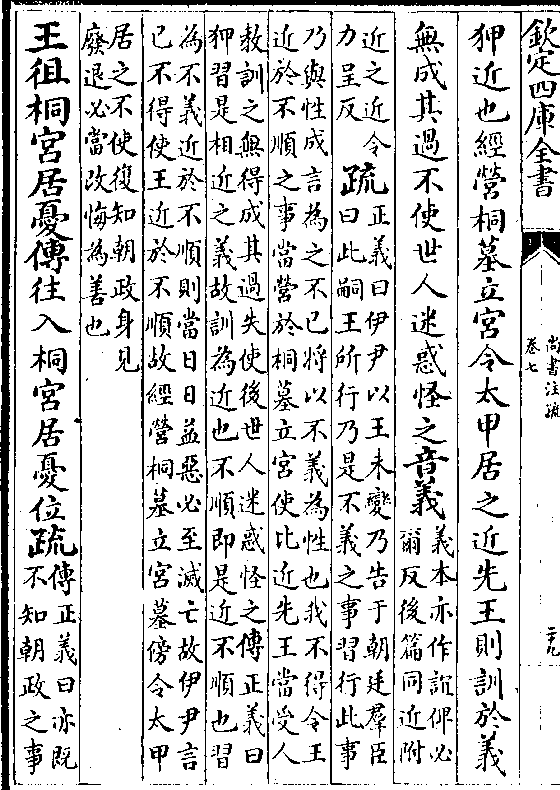 欽定四庫全書
尚書注疏
卷七
狎近也經營桐墓立宮令太甲居之近先王則訓於義
無成其過不使世人迷惑怪之音義義本亦作誼俾必
爾反後篇同近附
近之近令
力呈反
疏正義曰伊尹以王未變乃告于朝廷羣臣
曰此嗣王所行乃是不義之事習行此事
乃與性成言為之不已將以不義為性也我不得令王
近於不順之事當營於桐墓立宮使比近先王當受人
教訓之無得成其過失使後世人迷惑怪之傳正義曰
狎習是相近之義故訓為近也不順即是近不順也習
為不義近於不順則當日日益惡必至滅亡故伊尹言
已不得使王近於不順故經營桐墓立宮墓傍令太甲
居之不使復知朝政身見
廢退必當改悔為善也
王徂桐宮居憂傳往入桐宮居憂位疏傳正義曰亦既
不知朝政之事